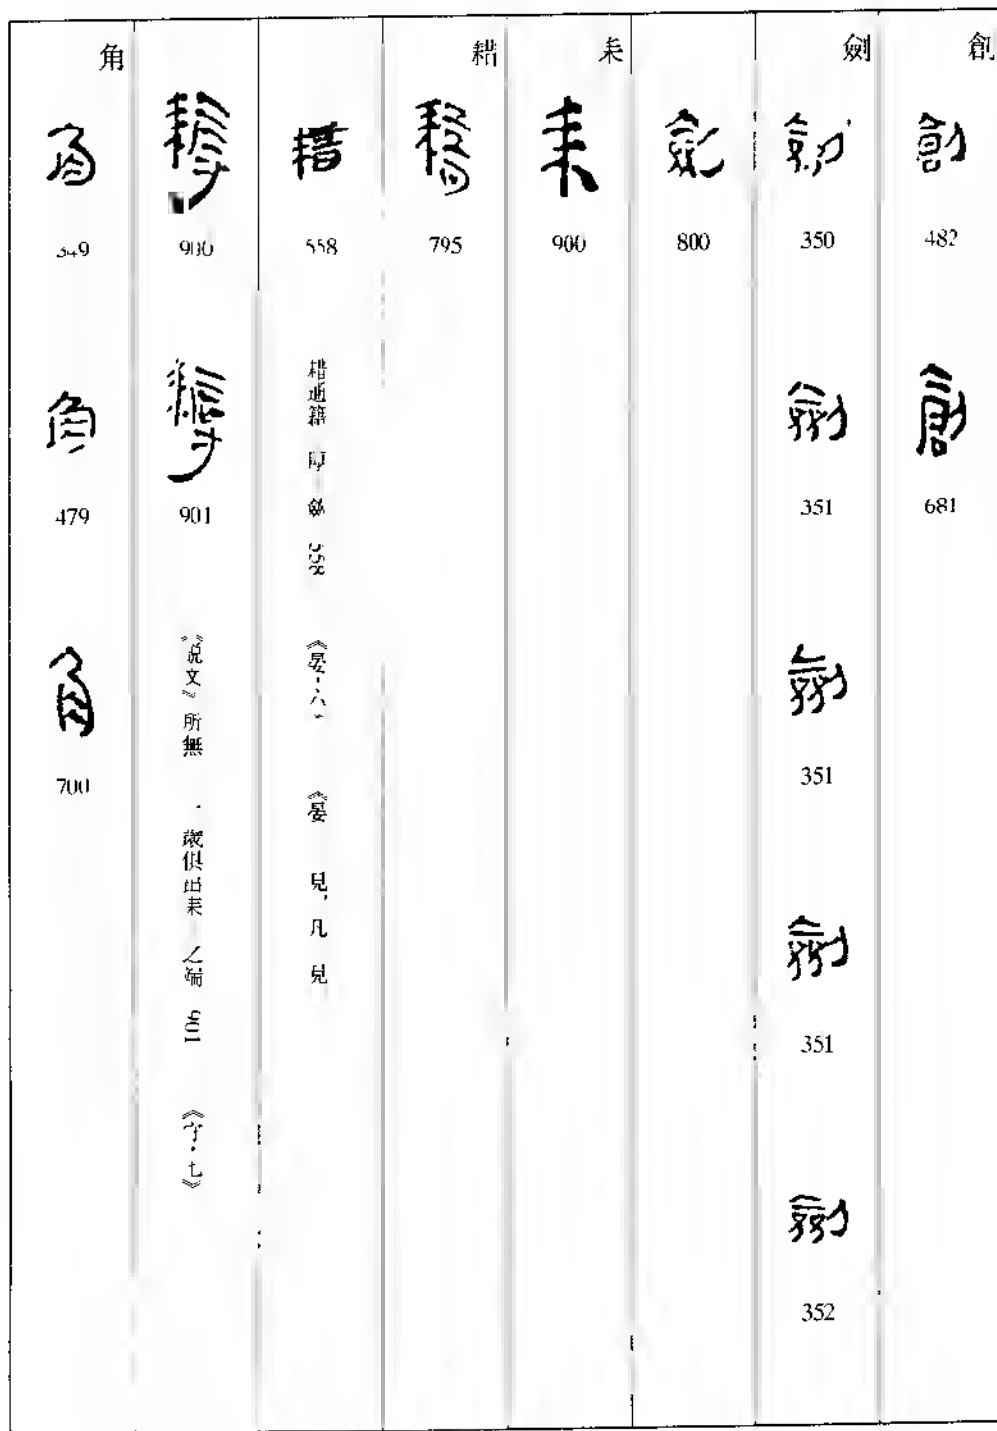 創
創 482
創 681
劍
劍 350
劍 351
劍 351
劍 351
劍 352
劍 800
耒
耒 900
耤
耤 795
耤 558
耤通籍 558 《晏·六》 《晏 見,凡 見
耨 900
耨 901
《説文》所無 歲俱出耒 之端 901 《守·七》
角
角 349
角 479
角 700